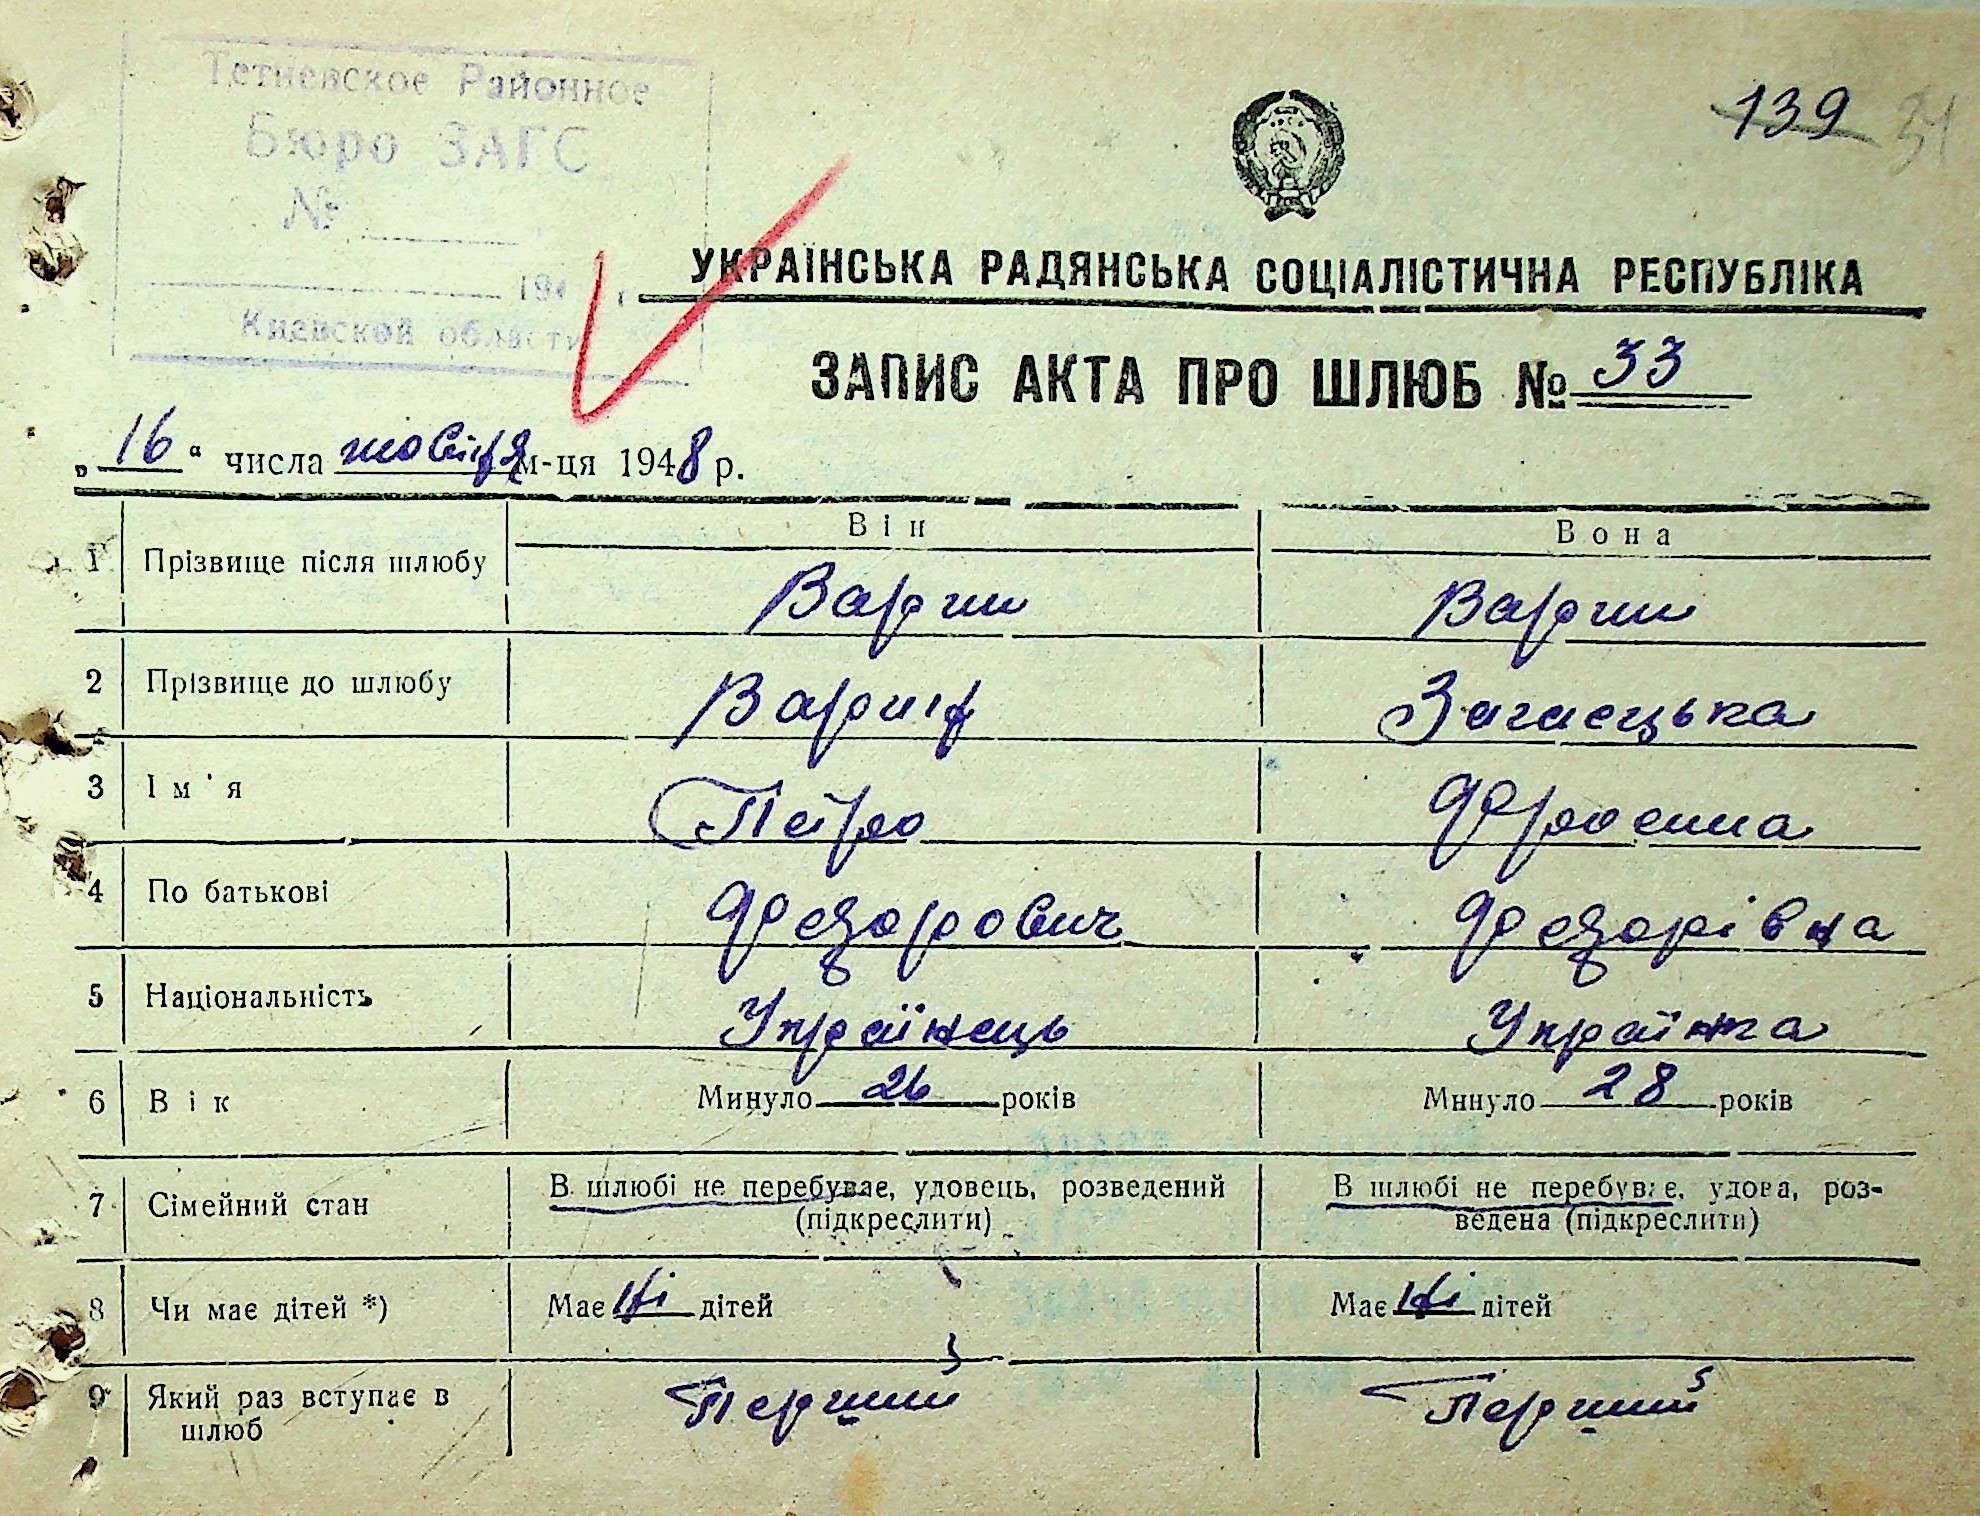 Тетиевское Районное
Бюро ЗАГС
№
194 г.
Киевской области
139 31
УКРАЇНСЬКА РАДЯНСЬКА СОЦІАЛІСТИЧНА РЕСПУБЛІКА
ЗАПИС АКТА ПРО ШЛЮБ № 33
„16“ числа жовтня м-ця 1948 р.
Він Вона
1 Прізвище після шлюбу Варчи Варчи
2 Прізвище до шлюбу Загаєцька
3 Ім'я Петро Фросина
4 По батькові Федорович Федорівна
5 Національність Українець Українка
6 Вік Минуло 26 років Минуло 28 років
7 Сімейний стан В шлюбі не перебуває, удовець, розведений (підкреслити) В шлюбі не перебуває, удова, роз-
ведена (підкреслити)
8 Чи має дітей *) Має Ні дітей Має Ні дітей
9 Який раз вступає в шлюб Перший Перший